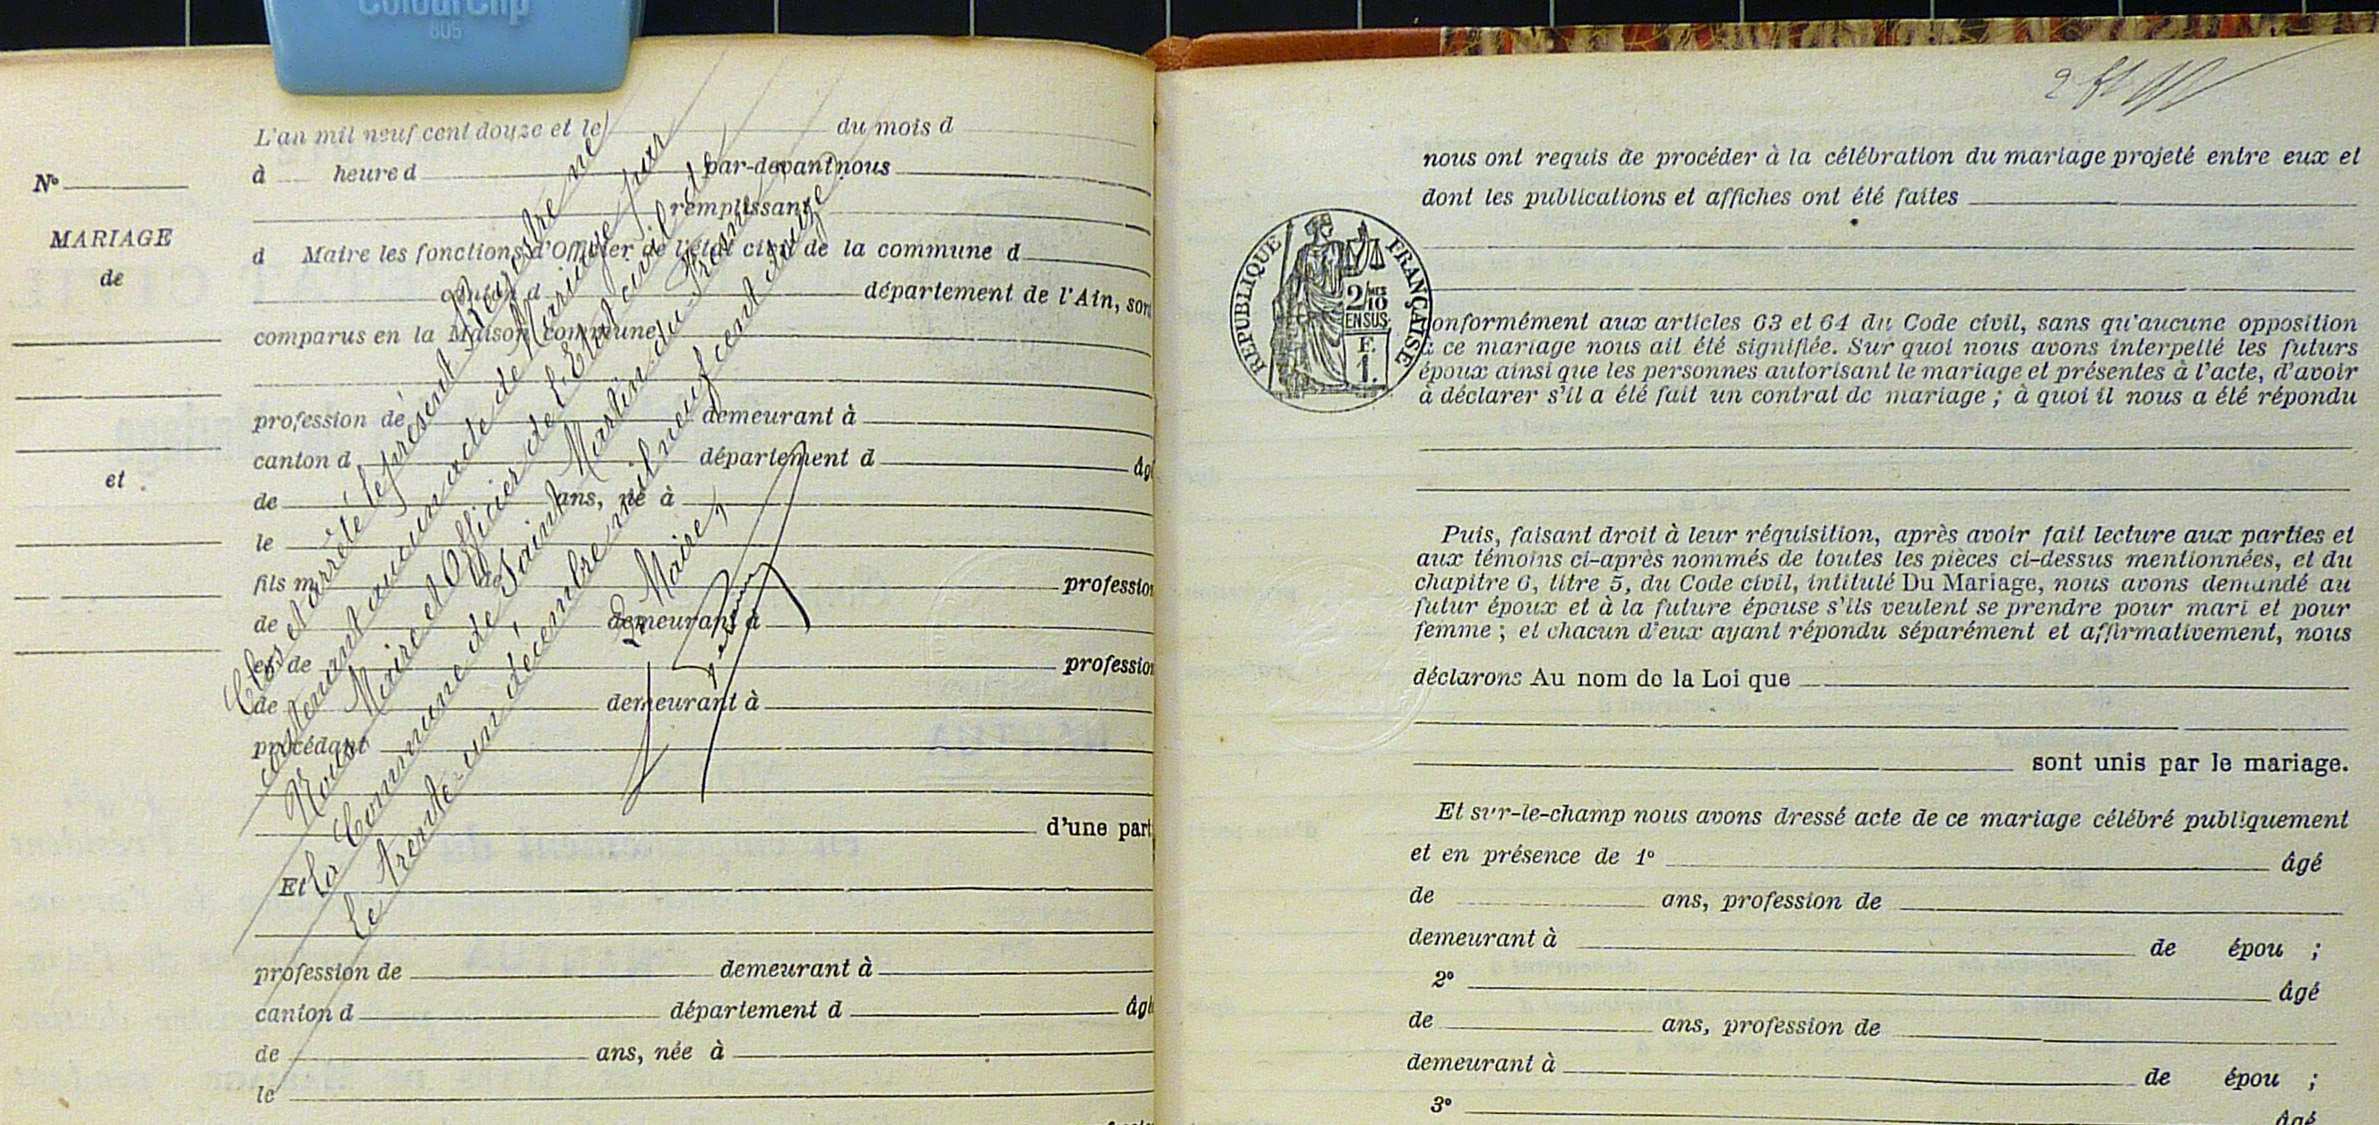 ColourClip
805
L'an mil neuf cent douze et le du mois d
à heure d par-devant nous
remplissant
d Maire les fonctions d'Officier de l'état civil de la commune d
canton d département de l'Ain, sont
comparus en la Maison commune
profession de demeurant à
canton d département d âgé
de ans, né à
le
fils m de profession
de demeurant à
et de profession
de demeurant à
procédant
d'une part
Et
profession de demeurant à
canton d département d âgé
de ans, née à
le
N°
MARIAGE
de
et
Clos et arrêté le présent Registre ne
contenant aucun acte de Mariage par
Nous Maire et Officier de l'Etat civil de
la Commune de Saint Martin-du-Fresne,
le trente-un décembre mil neuf cent douze.
Le Maire,
nous ont requis de procéder à la célébration du mariage projeté entre eux et
dont les publications et affiches ont été faites
RÉPUBLIQUE FRANÇAISE
2/10
EN SUS
F.
1.
conformément aux articles 63 et 64 du Code civil, sans qu'aucune opposition
à ce mariage nous ait été signifiée. Sur quoi nous avons interpellé les futurs
époux ainsi que les personnes autorisant le mariage et présentes à l'acte, d'avoir
à déclarer s'il a été fait un contrat de mariage ; à quoi il nous a été répondu
Puis, faisant droit à leur réquisition, après avoir fait lecture aux parties et
aux témoins ci-après nommés de toutes les pièces ci-dessus mentionnées, et du
chapitre 6, titre 5, du Code civil, intitulé Du Mariage, nous avons demandé au
futur époux et à la future épouse s'ils veulent se prendre pour mari et pour
femme ; et chacun d'eux ayant répondu séparément et affirmativement, nous
déclarons Au nom de la Loi que
sont unis par le mariage.
Et sur-le-champ nous avons dressé acte de ce mariage célébré publiquement
et en présence de 1° âgé
de ans, profession de
demeurant à de épou ;
2° âgé
de ans, profession de
demeurant à de épou ;
3° âgé